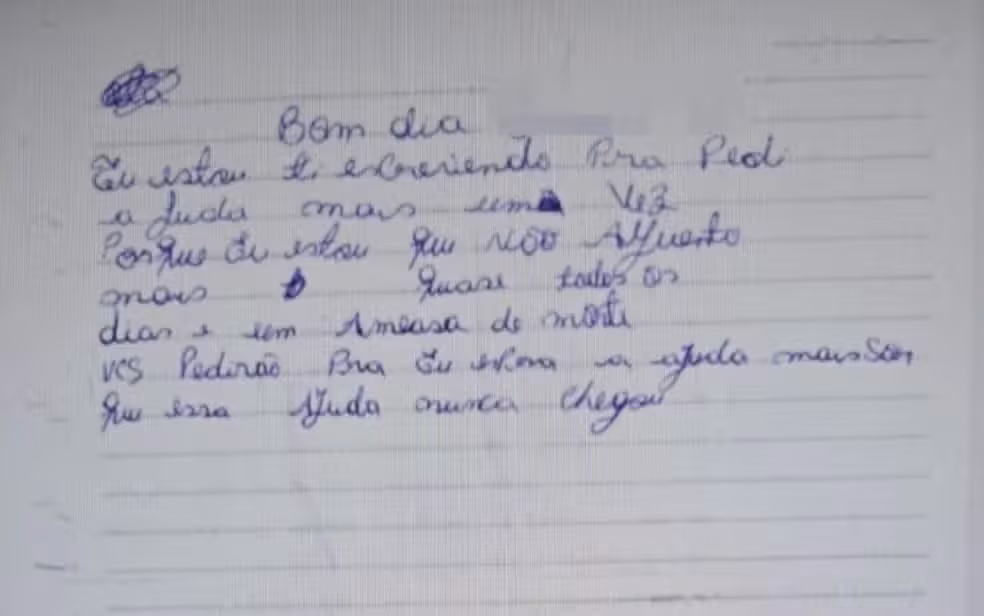 Bom dia
Eu estou ti escrevendo Pra Pedi
a Juda mais uma Vez
Porque Eu estou que não Aguento
mais quase todos os
dias e um Ameasa de morte
vcs Pedirão Pra Eu a ajuda mais
que essa Ajuda nunca chegou